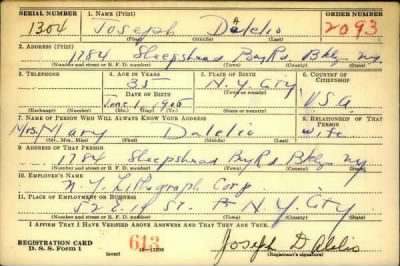 SERIAL NUMBER 1. NAME (Print) ORDER NUMBER
1304 Joseph A Dalelio 2093
(First) (Middle) (Last)
2. ADDRESS (Print)
1784 Sheepshead Bay Rd. Bklyn NY.
(Number and street or R. F. D. number) (Town) (County) (State)
3. TELEPHONE 4. AGE IN YEARS 5. PLACE OF BIRTH 6. COUNTRY OF CITIZENSHIP
35 N. Y. City
DATE OF BIRTH (Town or county)
June 1, 1905 U.S.A
(Exchange) (Number) (Mo.) (Day) (Yr.) (State or country)
7. NAME OF PERSON WHO WILL ALWAYS KNOW YOUR ADDRESS 8. RELATIONSHIP OF THAT PERSON
Mrs. Mary Dalelio Wife
(Mr., Mrs., Miss) (First) (Middle) (Last)
9. ADDRESS OF THAT PERSON
1784 Sheepshead Bay Rd. Bklyn NY
(Number and street or R. F. D. number) (Town) (County) (State)
10. EMPLOYER'S NAME
N. Y. Lithograph Corp.
11. PLACE OF EMPLOYMENT OR BUSINESS
52 E. 19 St. N. Y. City
(Number and street or R. F. D. number) (Town) (County) (State)
I AFFIRM THAT I HAVE VERIFIED ABOVE ANSWERS AND THAT THEY ARE TRUE.
REGISTRATION CARD 613 Joseph Dalelio
D. S. S. Form 1 (over) (Registrant's signature)